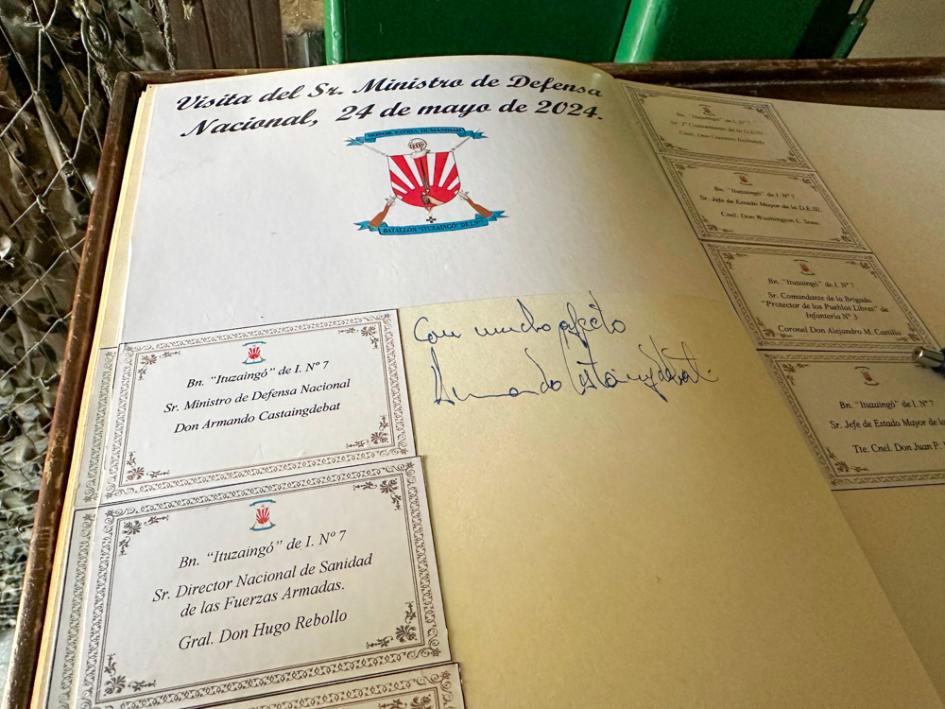 Visita del Sr. Ministro de Defensa
Nacional, 24 de mayo de 2024.
HONOR, PATRIA, HUMANIDAD
BATALLÓN "ITUZAINGÓ" DE I. Nº7
Bn. "Ituzaingó" de I. Nº 7
Sr. Ministro de Defensa Nacional
Don Armando Castaingdebat
Con mucho afecto
Armando Castaingdebat
Bn. "Ituzaingó" de I. Nº 7
Sr. Director Nacional de Sanidad
de las Fuerzas Armadas.
Gral. Don Hugo Rebollo
Bn. "Ituzaingó" de I. Nº 7
Sr. 2º Comandante de la D.E.III.
Cnel. Don Gustavo
Bn. "Ituzaingó" de I. Nº 7
Sr. Jefe de Estado Mayor de la D.E.III.
Cnel. Don Washington L.
Bn. "Ituzaingó" de I. Nº 7
Sr. Comandante de la Brigada
"Protector de los Pueblos Libres" de
Infantería Nº 3
Coronel Don Alejandro M. Castillo
Bn. "Ituzaingó" de I. Nº 7
Sr. Jefe de Estado Mayor de la
Tte. Cnel. Don Juan P.